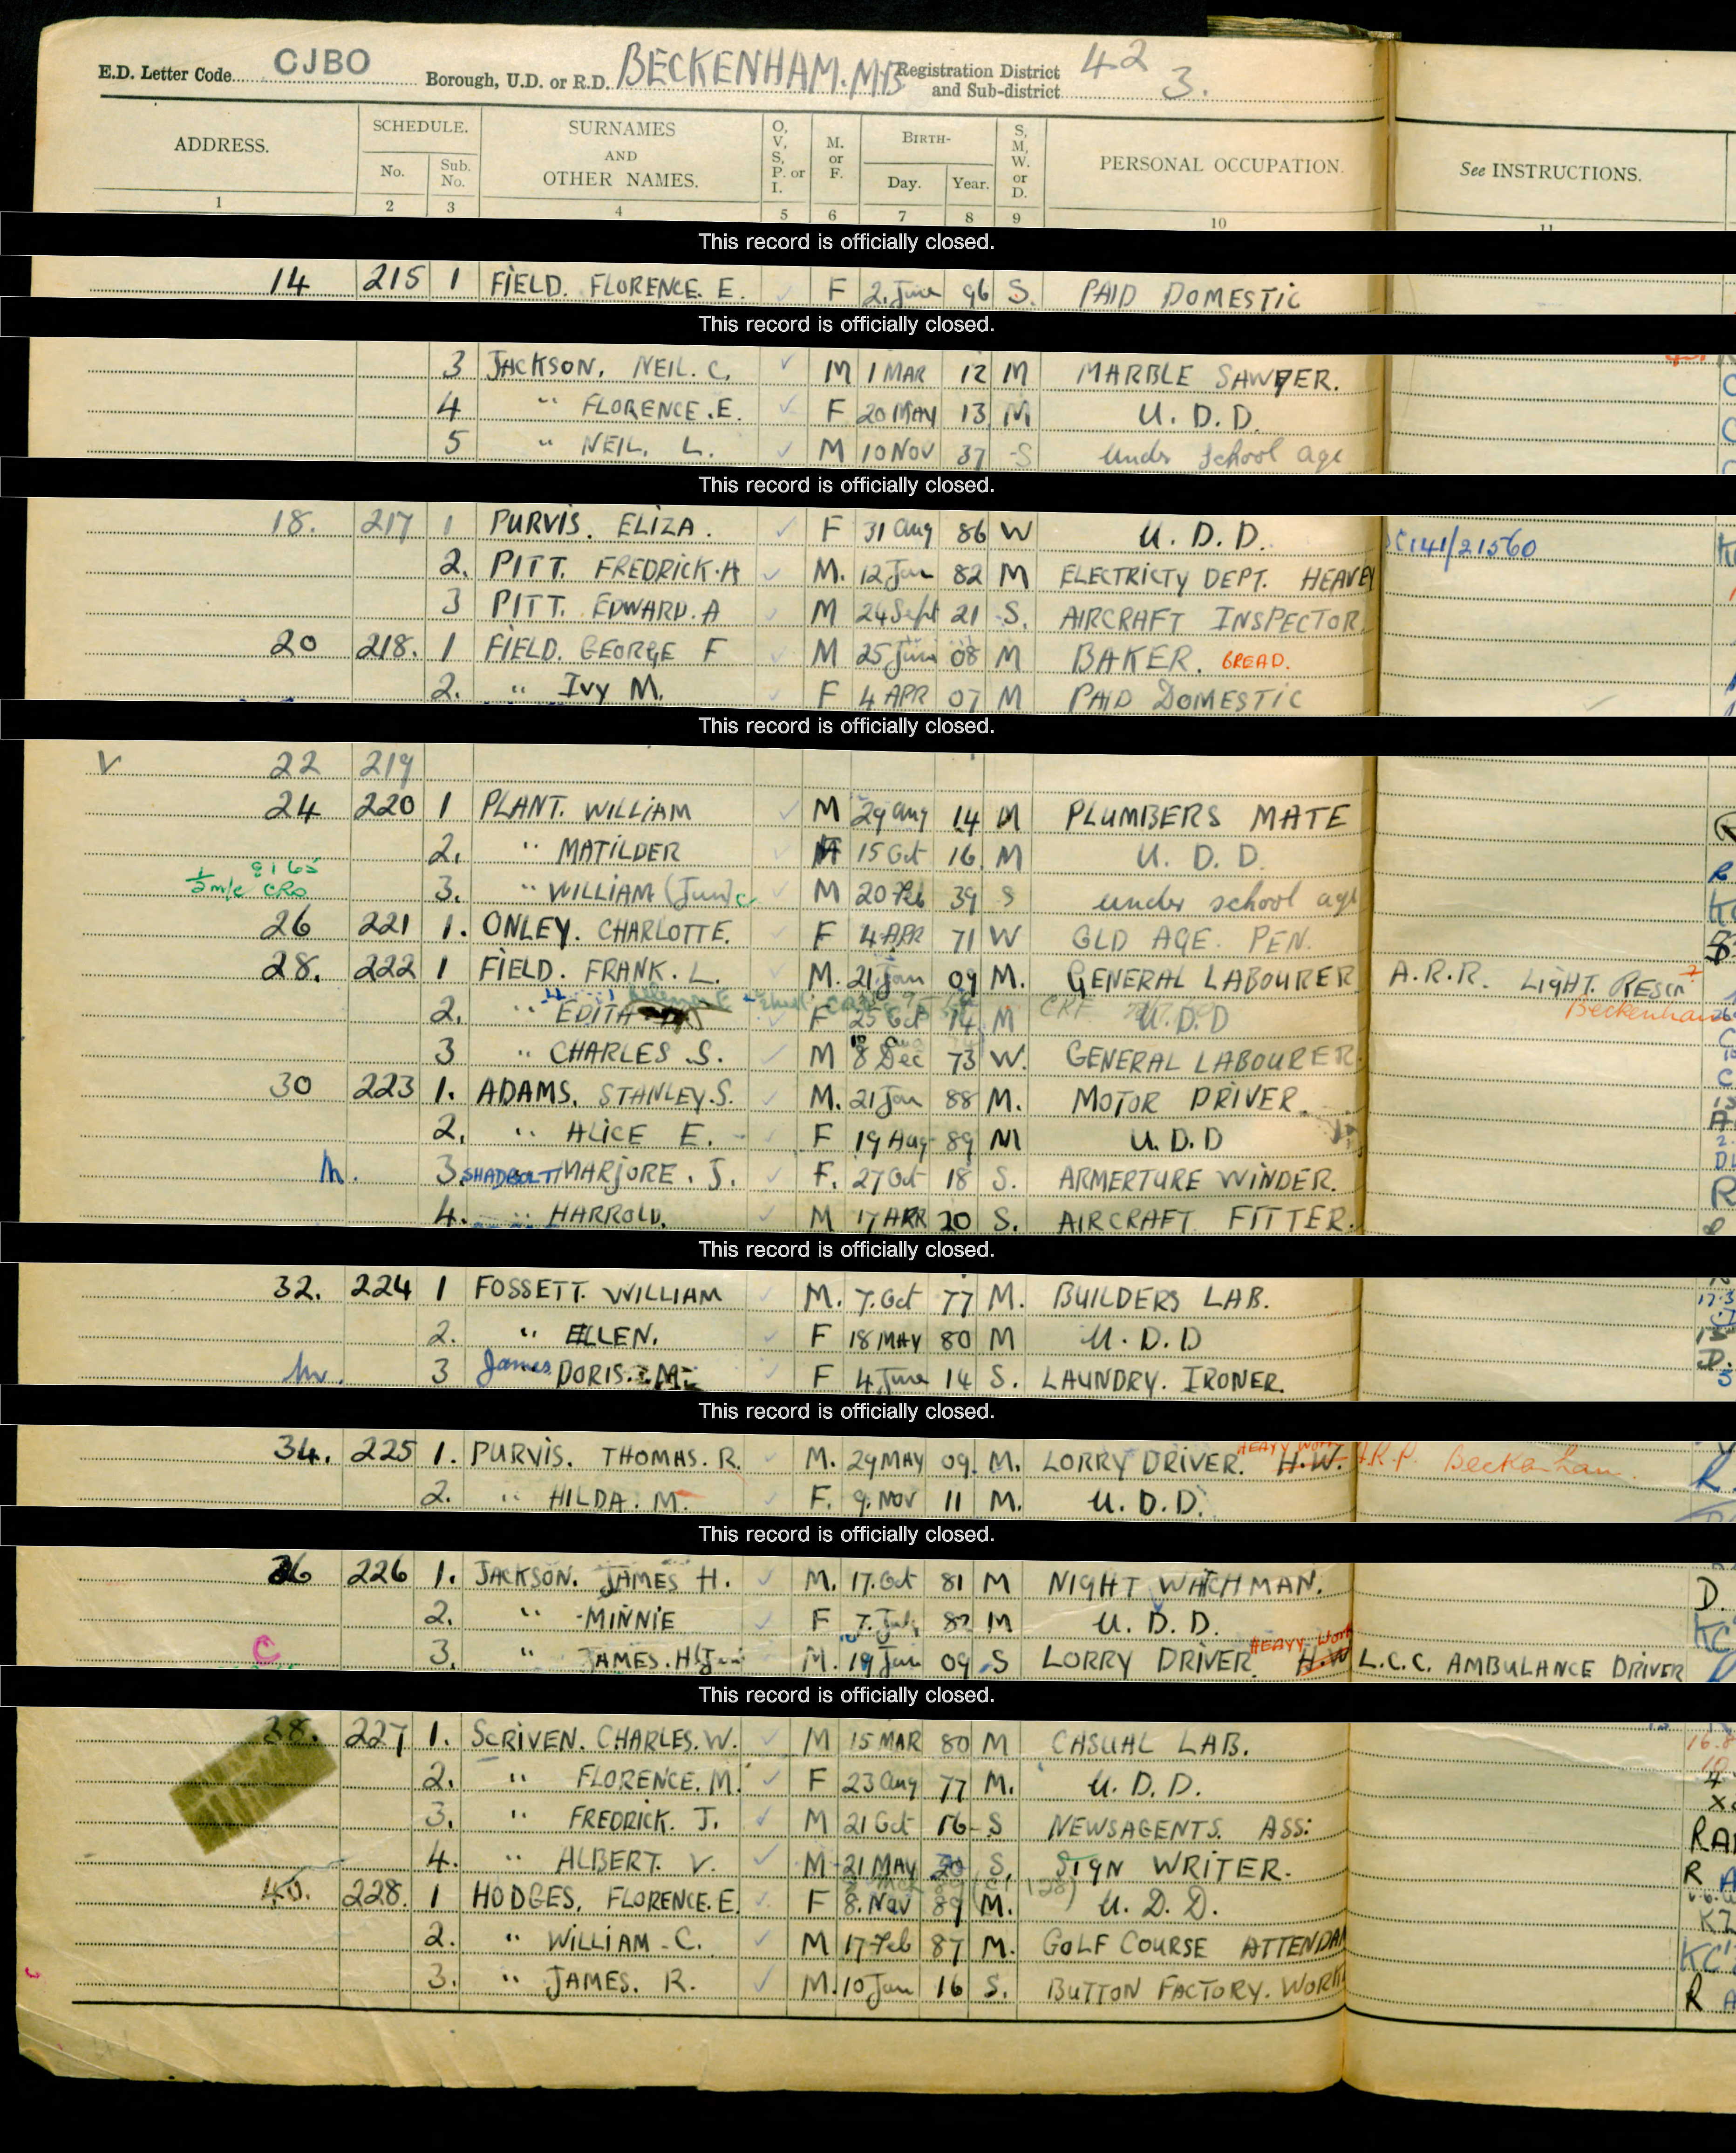 E.D. Letter Code CJBO Borough, U.D. or R.D. BECKENHAM. M.B Registration District and Sub-district 42 3.
ADDRESS. SCHEDULE. No. Sub. No. SURNAMES AND OTHER NAMES. O, V, S, P. or I. M. or F. BIRTH- Day. Year. S, M, W. or D. PERSONAL OCCUPATION. See INSTRUCTIONS.
1 2 3 4 5 6 7 8 9 10 11
This record is officially closed.
14 215 1 FIELD. FLORENCE. E. F 2. June 96 S. PAID DOMESTIC
This record is officially closed.
3 JACKSON. NEIL. C. M 1 MAR 12 M MARBLE SAWYER.
4 " FLORENCE. E. F 20 MAY 13 M U. D. D.
5 " NEIL. L. M 10 NOV 37 S under school age
This record is officially closed.
18. 217 1 PURVIS. ELIZA. F 31 Aug 86 W U. D. D. 141/21560
2. PITT. FREDRICK. H M. 12 Jan 82 M ELECTRICTY DEPT. HEAVEY
3 PITT. EDWARD. A M 24 Sept 21 S. AIRCRAFT INSPECTOR
20 218. 1 FIELD. GEORGE F M 25 June 08 M BAKER. BREAD.
2. " IVY M. F 4 APR 07 M PAID DOMESTIC
This record is officially closed.
V 22 219
24 220 1 PLANT. WILLIAM M 29 Aug 14 M PLUMBERS MATE
2. " MATILDER F 15 Oct 16 M U. D. D.
3. " WILLIAM (Jun) c M 20 Feb 39 S under school age
26 221 1. ONLEY. CHARLOTTE. F 4 APR 71 W OLD AGE. PEN.
28. 222 1 FIELD. FRANK. L. M. 21 Jan 09 M. GENERAL LABOURER A.R.R. LIGHT. RESCR
Beckenham
2. " EDITH F 25 Oct 14 M U. D. D
3 " CHARLES. S. M 8 Dec 73 W. GENERAL LABOURER.
30 223 1. ADAMS. STANLEY. S. M. 21 Jan 88 M. MOTOR DRIVER.
2. " ALICE E. F 19 Aug 89 M U. D. D
M. 3. SHADBOLT MARJORE. J. F. 27 Oct 18 S. ARMERTURE WINDER.
4. " HARROLD. M 17 APR 20 S. AIRCRAFT FITTER.
This record is officially closed.
32. 224 1 FOSSETT. WILLIAM M. 7. Oct 77 M. BUILDERS LAB.
2. " ELLEN. F 18 MAY 80 M U. D. D
M. 3 James DORIS. M. F 4 June 14 S. LAUNDRY. IRONER.
This record is officially closed.
34. 225 1. PURVIS. THOMAS. R. M. 29 MAY 09. M. LORRY DRIVER. H.W. HEAVY WORK A.R.P. Beckenham.
2. " HILDA. M. F. 9. NOV 11 M. U. D. D.
This record is officially closed.
36 226 1. JACKSON. JAMES H. M. 17. Oct 81 M NIGHT WATCHMAN.
2. " MINNIE F 7. July 82 M U. D. D.
C 3. " JAMES. H. Jun M. 19 Jan 09 S LORRY DRIVER. H.W HEAVY WORK L.C.C. AMBULANCE DRIVER
This record is officially closed.
38. 227 1. SCRIVEN. CHARLES. W. M 15 MAR 80 M CASUAL LAB.
2. " FLORENCE. M. F 23 Aug 77 M. U. D. D.
3. " FREDRICK. J. M 21 Oct 16 S NEWSAGENTS. ASS:
4. " ALBERT. V. M 21 MAY 20 S. SIGN WRITER.
40. 228. 1 HODGES. FLORENCE. E. F 8. Nov 89 M. U. D. D.
2. " WILLIAM. C. M 17 Feb 87 M. GOLF COURSE ATTENDAN
3. " JAMES. R. M. 10 Jan 16 S. BUTTON FACTORY. WORK